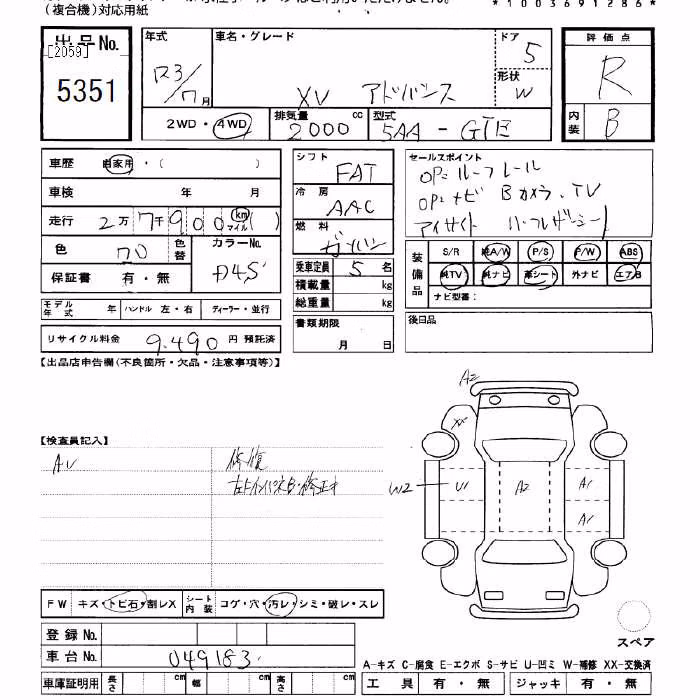 (複合機)対応用紙
*1003691286*
出品No.
[2059]
5351
年式
R3/7月
車名・グレード
XV アドバンス
ドア
5
形状
W
2WD・4WD
排気量
2000cc
型式
5AA-GTE
評価点
R
内装
B
車歴 自家用・( )
車検 年 月
走行 2万7千900km マイル( )
色 クロ 色替
カラーNo. D4S
保証書 有・無
モデル年式 年 ハンドル 左・右 ディーラー・並行
リサイクル料金 9,490円 預託済
シフト
FAT
冷房
AAC
燃料
ガソリン
乗車定員 5名
積載量 kg
総重量 kg
書類期限
月 日
セールスポイント
OP=ルーフレール
OP=ナビ Bカメラ、TV
アイサイト ハーフレザーシート
装備品
S/R 純A/W P/S P/W ABS
純TV 純ナビ 革シート 外ナビ エアB
ナビ型番:
後日品
【出品店申告欄(不良箇所・欠品・注意事項等)】
【検査員記入】
AU
修復
A2
XX
W2
U1
A2
A1
A1
FW キズ・トビ石・割レX
シート内装 コゲ・穴・汚レ・シミ・破レ・スレ
登録No.
車台No. 049183
車庫証明用 長さ cm 幅 cm 高さ cm
スペア
A-キズ C-腐食 E-エクボ S-サビ U-凹ミ W-補修 XX-交換済
工具 有・無 ジャッキ 有・無